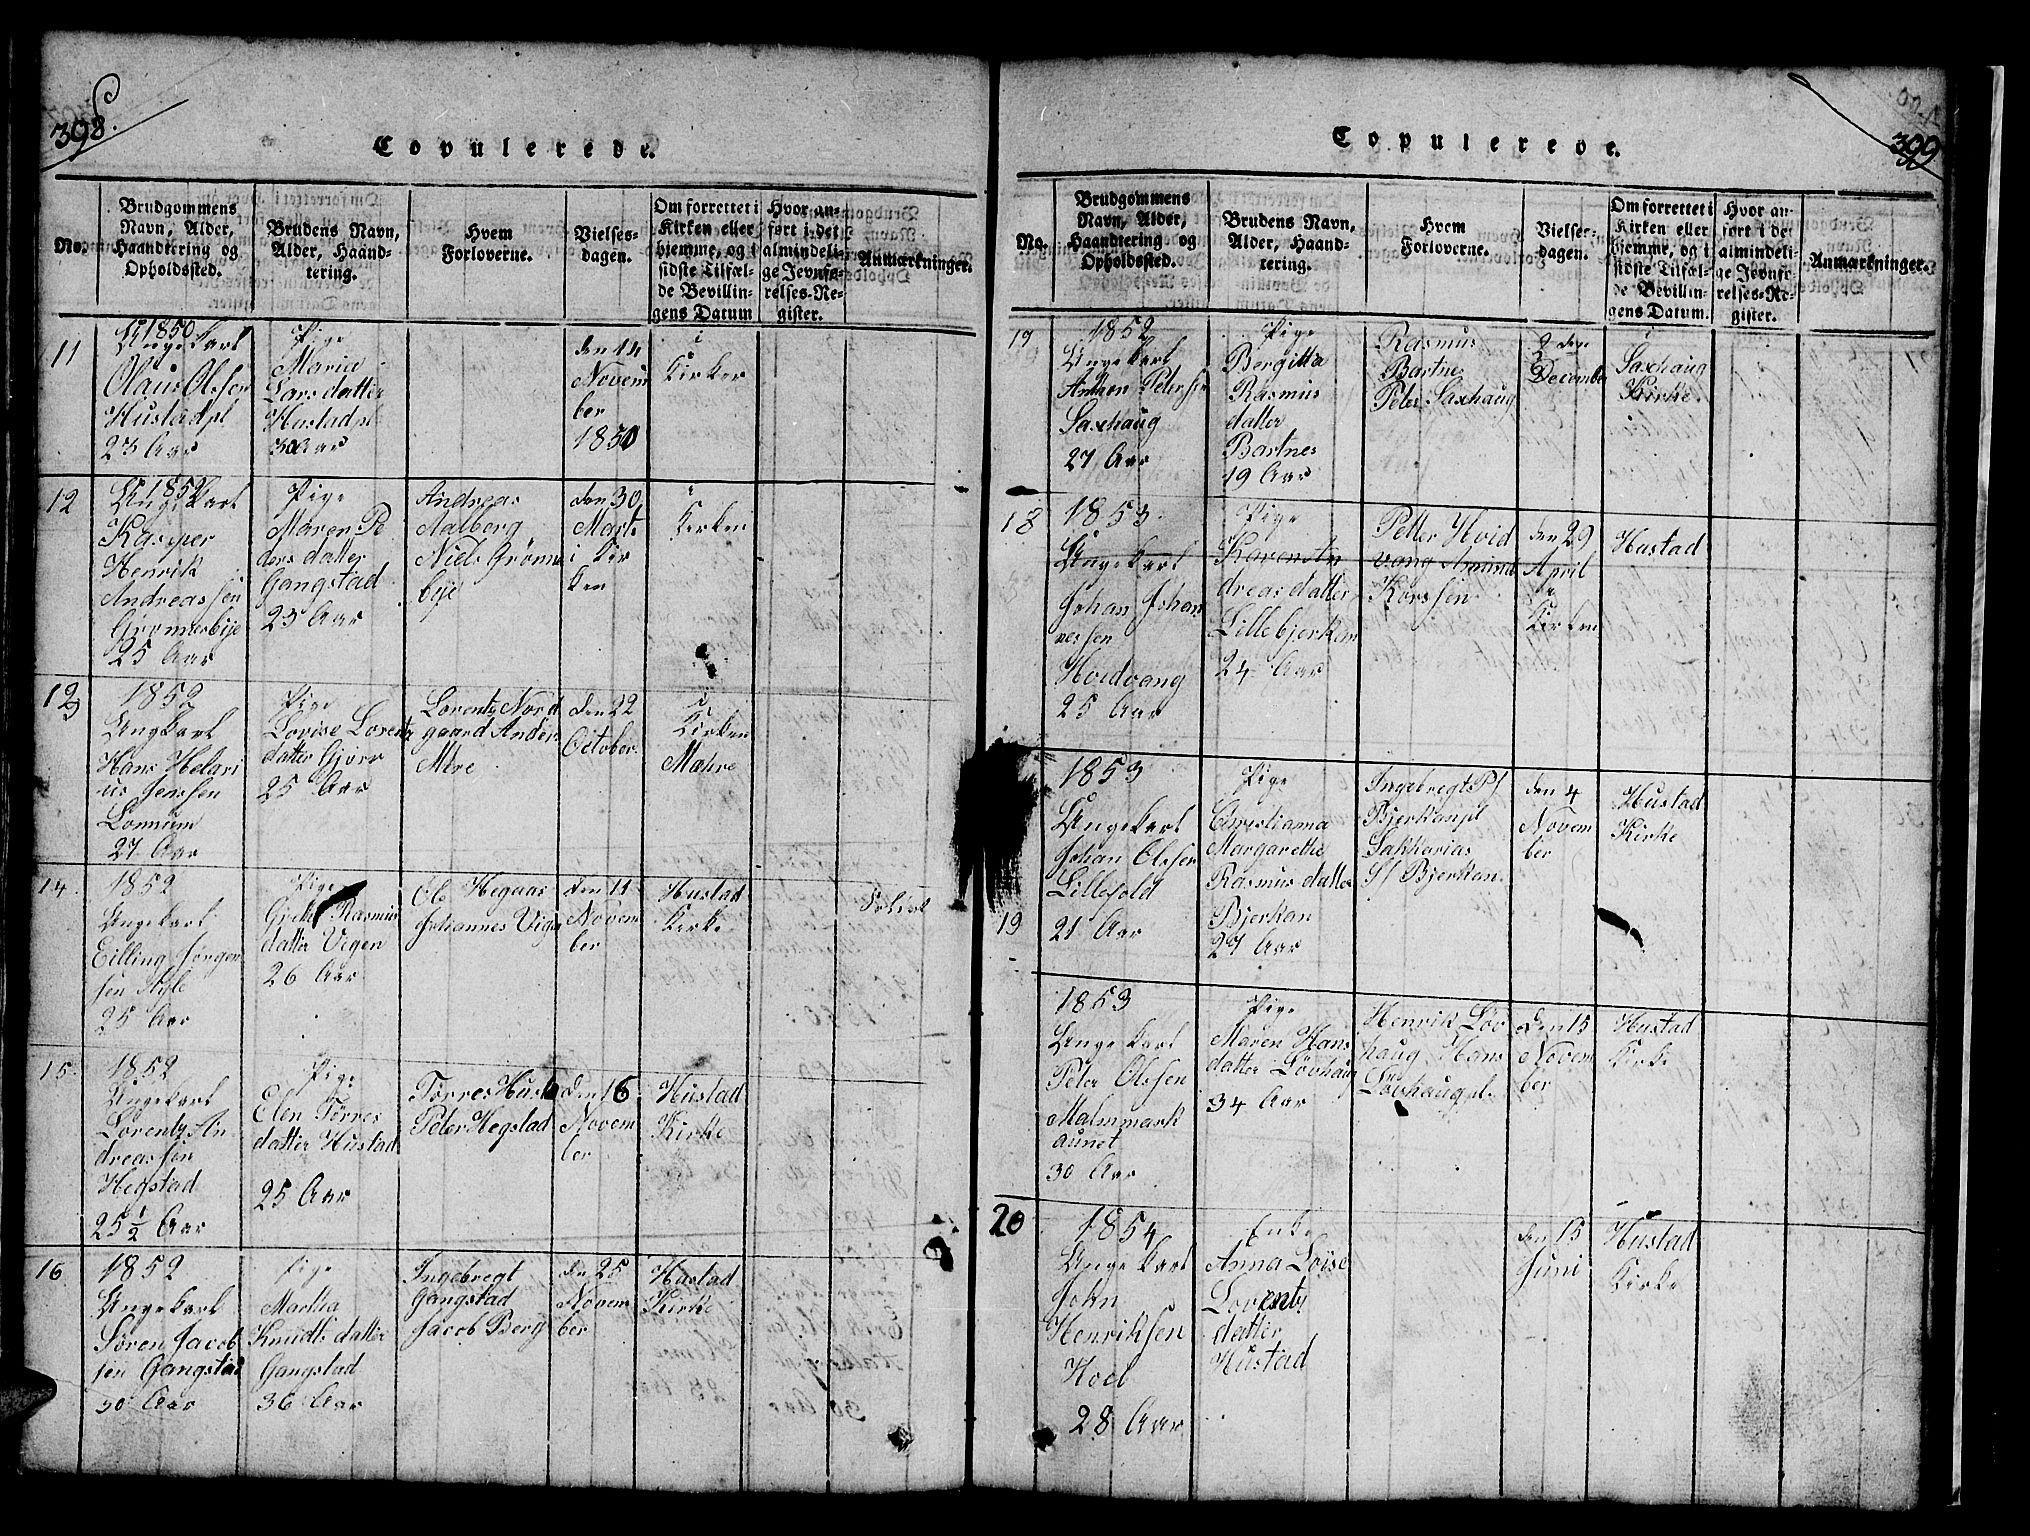 398.
Copulerede.
No.
Brudgommens Navn, Alder, Haandtering og Opholdssted.
Brudens Navn, Alder, Haandtering.
Hvem Forloverne.
Vielsesdagen.
Om forrettet i Kirken eller hjemme, og i sidste Tilfælde Bevillingens Datum
Hvor anført i det almindelige Jevnførelses-Register.
Anmærkninger.
11
1850
Ungekarl
Olaus Olssen
Hustadpl
23 Aar
Pige
Maria
Larsdatter
Hustadpl
30 Aar
den 14
Novem
ber
1850
i
Kirken
12
1852
Ungekarl
Kasper
Henrik
Andreassen
Grønnesbye
25 Aar
Pige
Maren Pe
dersdatter
Gangstad
23 Aar
Andreas
Aalberg
Niels Grønnes
bye
den 30
Marts
i Kir
ken
i
Kirken
13
1852
Ungkarl
Hans Helari
us Jenssen
Lonnum
27 Aar
Pige
Lovise Lorentz
datter Gjörv
25 Aar
Lorentz Nord
gaard Anders
Mære
den 22
October
i
Kirken
Mæhre
14
1852
Ungekarl
Eilling Jørgen
sen
25 Aar
Pige
Rasmus
datter Vigen
26 Aar
Ole Heguas
Johannes Vigen
den 11
Novem
ber
Hustad
Kirke
15
1852
Ungekarl
Lorentz An
dreassen
Hegstad
25 1/2 Aar
Pige
Elen Törres
datter Hustad
25 Aar
Törres Hustad
Peter Hegstad
den 16
Novem
ber
Hustad
Kirke
16
1852
Ungekarl
Sören Jacob
sen Gangstad
30 Aar
Pige
Martha
Knudts datter
Gangstad
36 Aar
Ingebregt
Gangstad
Jacob Berg
den 25
Novem
ber
Hustad
Kirke
399
Copulerede.
No.
Brudgommens Navn, Alder, Haandtering og Opholdssted.
Brudens Navn, Alder, Haandtering.
Hvem Forloverne.
Vielsesdagen.
Om forrettet i Kirken eller hjemme, og i sidste Tilfælde Bevillingens Datum.
Hvor anført i de almindelige Jevnførelses-Register.
Anmærkninger.
1852
Ungekarl
Anthon Petersen
Saxhaug
27 Aar
Pige
Bergitta
Rasmus
datter
Bartnes
19 Aar
Rasmus
Bartnes
Peter Saxhaug
3 den
December
i
Saxhaug
Kirke
18
1853
Ungekarl
Johan Johan
nessen
Hvidvang
25 Aar
Pige
Karen An
dreasdatter
Lillebjerkem
24 Aar
Petter Hvid
vang Amund
Korssen
den 29
April
i
Kirken
Hustad
19
1853
Ungekarl
Johan Olssen
Lillefold
21 Aar
Pige
Christianna
Margarethe
Rasmus datter
Bjerkan
27 Aar
Ingebregt Pl
Bjerkanpl
Sakkarias
Bjerkan
den 4
Novem
ber
Hustad
Kirke
1853
Ungekarl
Peter Olssen
Malmmark
aunet
30 Aar
Pige
Maren Hans
datter Lövhaug
34 Aar
Henrik Löv
haug Hans
Lövhaugpl.
den 15
Novem
ber
Hustad
Kirke
20
1854
Ungekarl
John
Henriksen
Hoel
28 Aar
Enke
Anna Loise
Lorentz
datter
Hustad
den 15
Juni
Hustad
Kirke